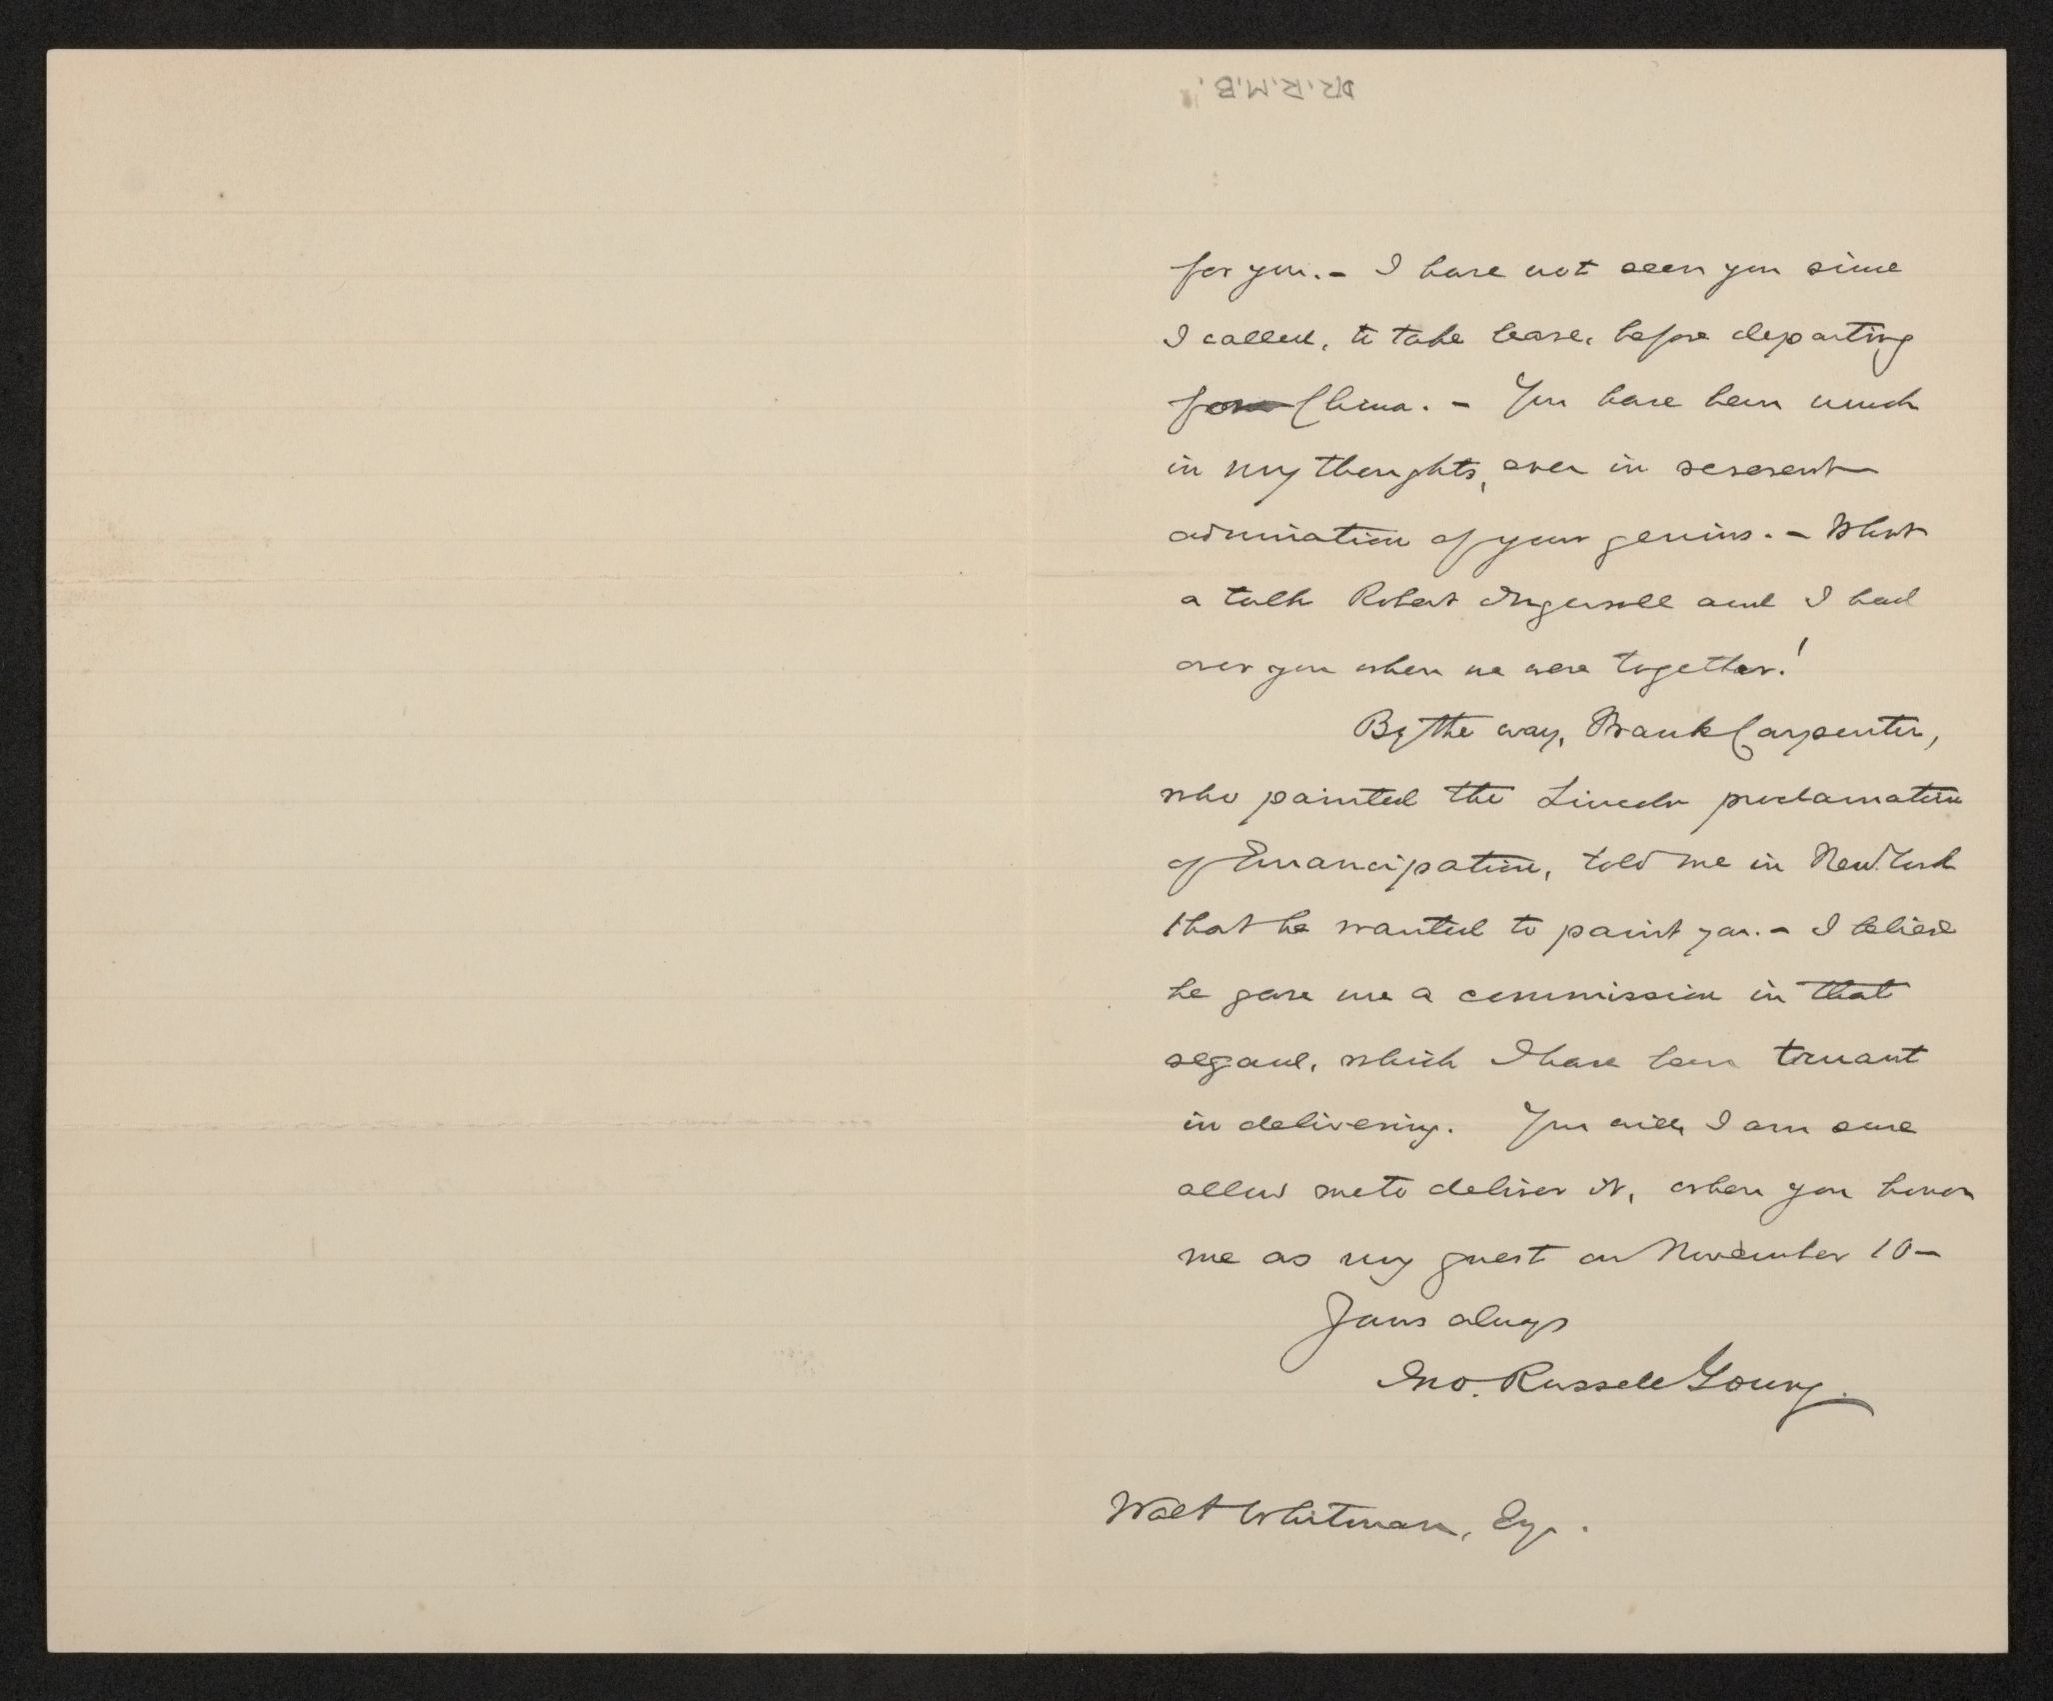 DR. R.M.B.
for you. – I have not seen you since
I called, to take leave, before departing
for China. – You have been much
in my thoughts, ever in reverent
admiration of your genius. – What
a talk Robert Ingersoll and I had
over you when we were together!
By the way, Frank Carpenter,
who painted the Lincoln proclamation
of Emancipation, told me in New York
that he wanted to paint you. – I believe
he gave me a commission in that
regard, which I have been truant
in delivering. You will, I am sure
allow me to deliver it, when you honor
me as my guest on November 10 –
Yours always
Jno. Russell Young.
Walt Whitman, Esq.